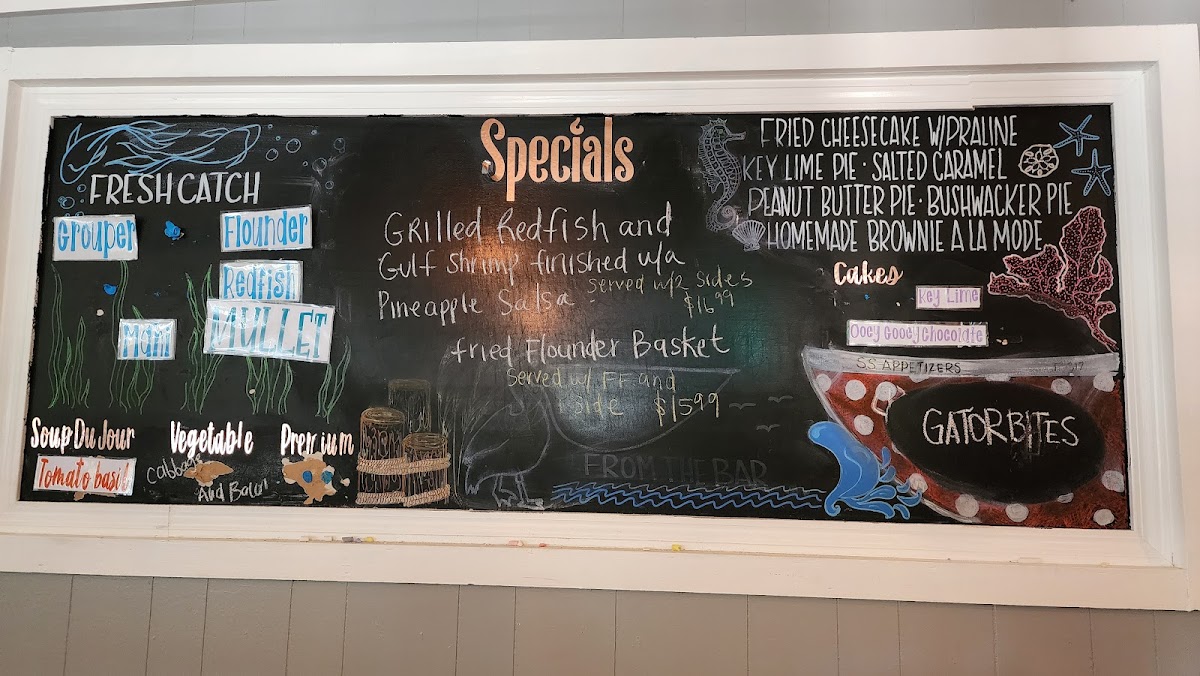 FRESH CATCH
Grouper
Flounder
Redfish
Mahi
MULLET
Soup Du Jour
Tomato basil
Vegetable
Cabbage
And Bacon
Premium
Specials
Grilled Redfish and
Gulf Shrimp finished w/a
Pineapple Salsa served w/2 sides
$16.99
fried Flounder Basket
Served w/ FF and
side $15.99
FROM THE BAR
FRIED CHEESECAKE W/PRALINE
KEY LIME PIE · SALTED CARAMEL
PEANUT BUTTER PIE · BUSHWACKER PIE
HOMEMADE BROWNIE A LA MODE
Cakes
Key Lime
Ooey Gooey Chocolate
SS APPETIZERS
GATOR BITES